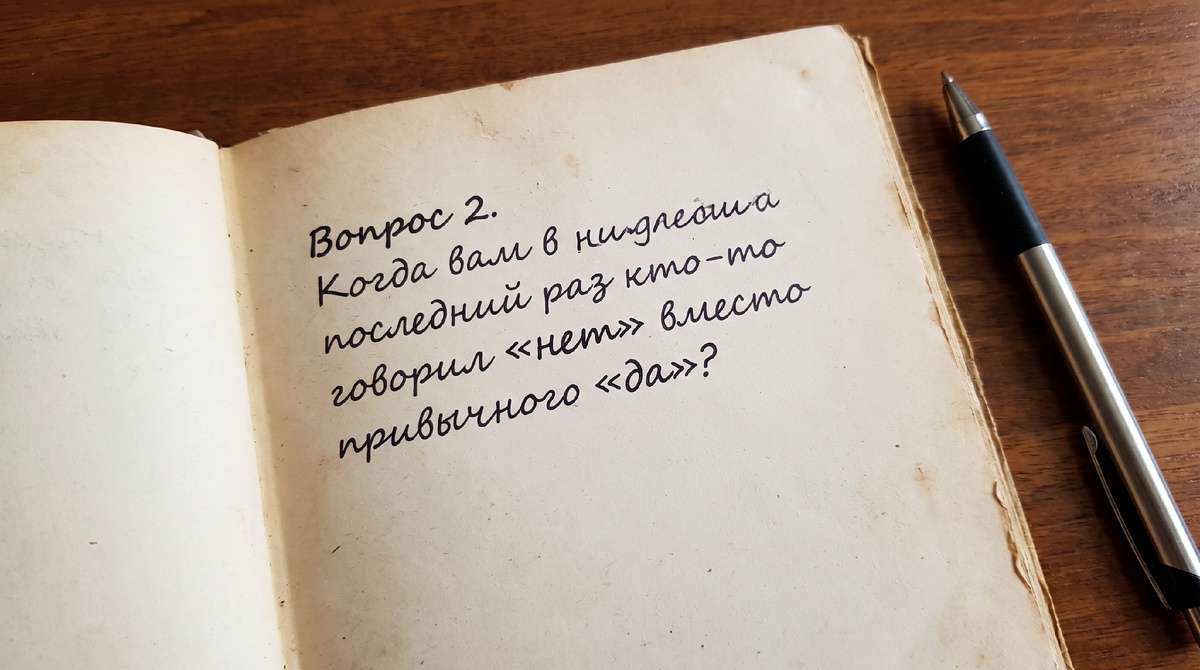 Вопрос 2.
Когда вам в
последний раз кто-то
говорил «нет» вместо
привычного «да»?